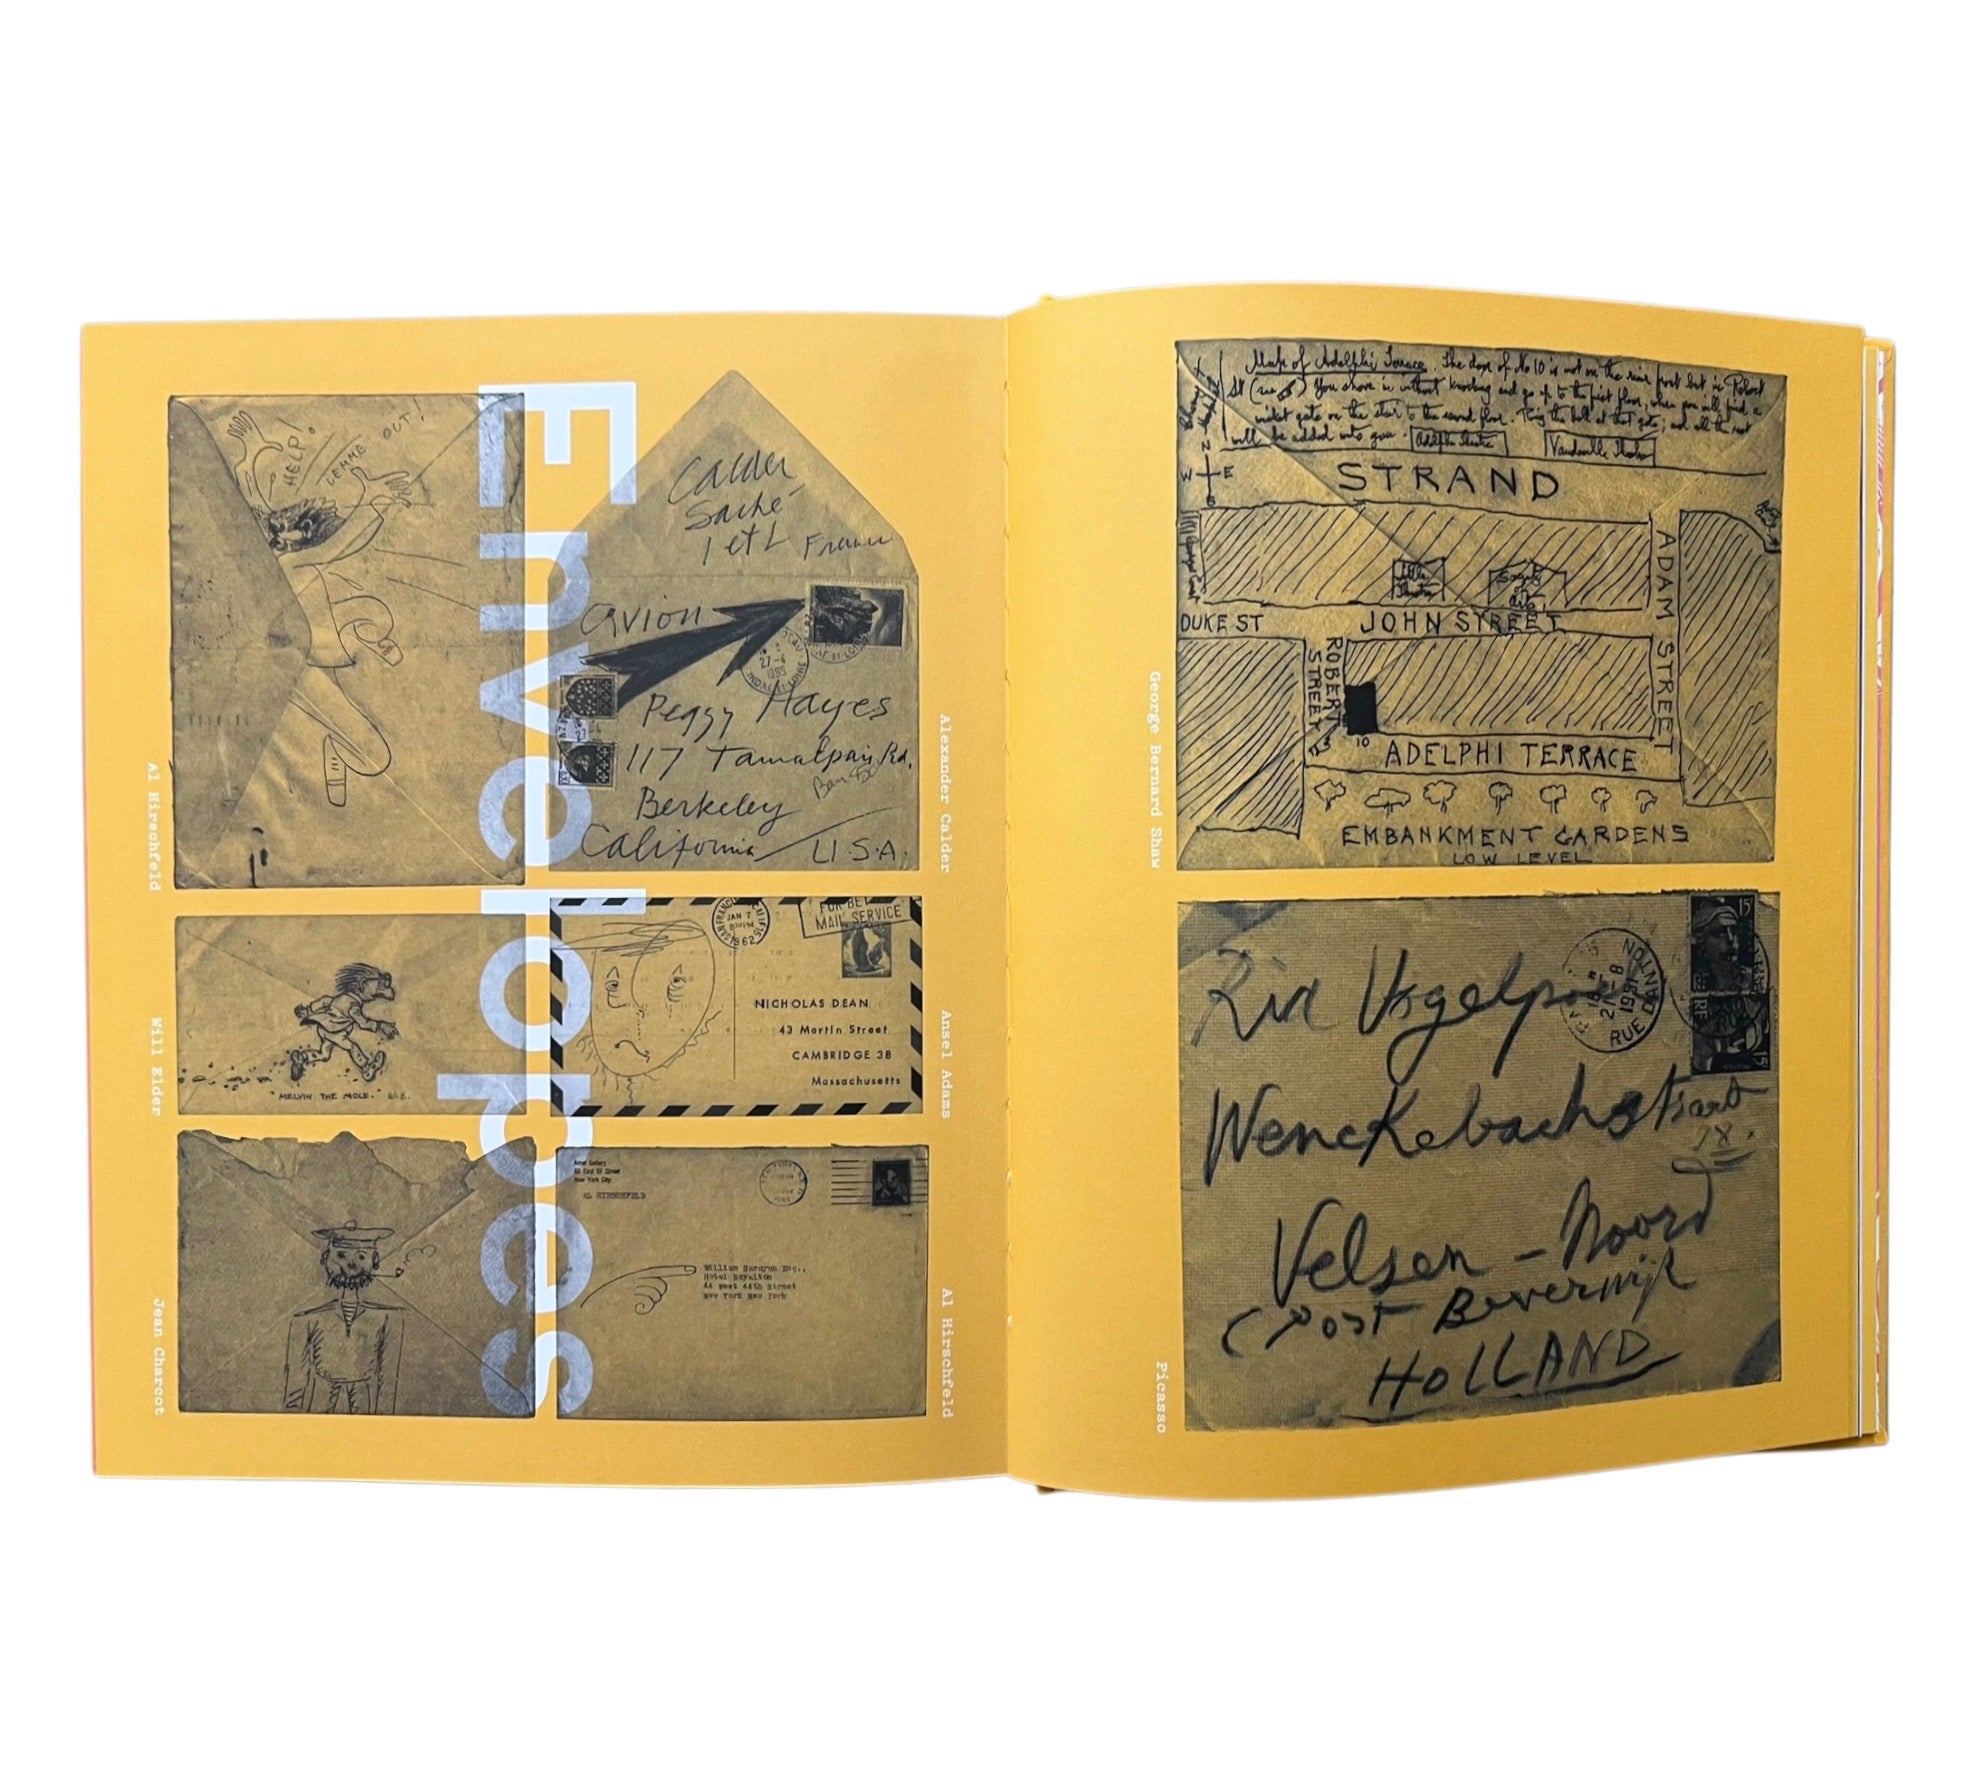 Envelopes
HELP!
LEMME OUT!
Al Hirschfeld
Calder
Saché
I et L France
avion
27-4
Peggy Hayes
117 Tamalpais Rd.
Berkeley
California U.S.A.
Alexander Calder
"MELVIN THE MOLE." W.E.
Will Elder
SAN FRANCISCO CALIF
JAN 7
1962
MAIL SERVICE
NICHOLAS DEAN
43 Martin Street
CAMBRIDGE 38
Massachusetts
Ansel Adams
Jean Charcot
New York City
AL HIRSCHFELD
William Saroyan Esq.,
Hotel Royalton
44 West 44th Street
New York New York
Al Hirschfeld
Map of Adelphi Terrace. The door of No 10 is not on the river front but in Robert
St (see ) You shove in without knocking and go up to the first floor, where you will find a
wicket gate on the stair to the second floor. Ring the bell at that gate; and all the rest
will be added unto you. Adelphi Theatre Vaudeville Theatre
N
W E
S
STRAND
ADAM STREET
Little Theatre
Society of Arts
DUKE ST
JOHN STREET
ROBERT STREET
10
ADELPHI TERRACE
EMBANKMENT GARDENS
LOW LEVEL
George Bernard Shaw
15F
PARIS
18H
21-8
1951
RUE DANTON
RF
15F
Wenckebachstraat
Velsen - Noord
(Post Beverwijk
HOLLAND
Picasso